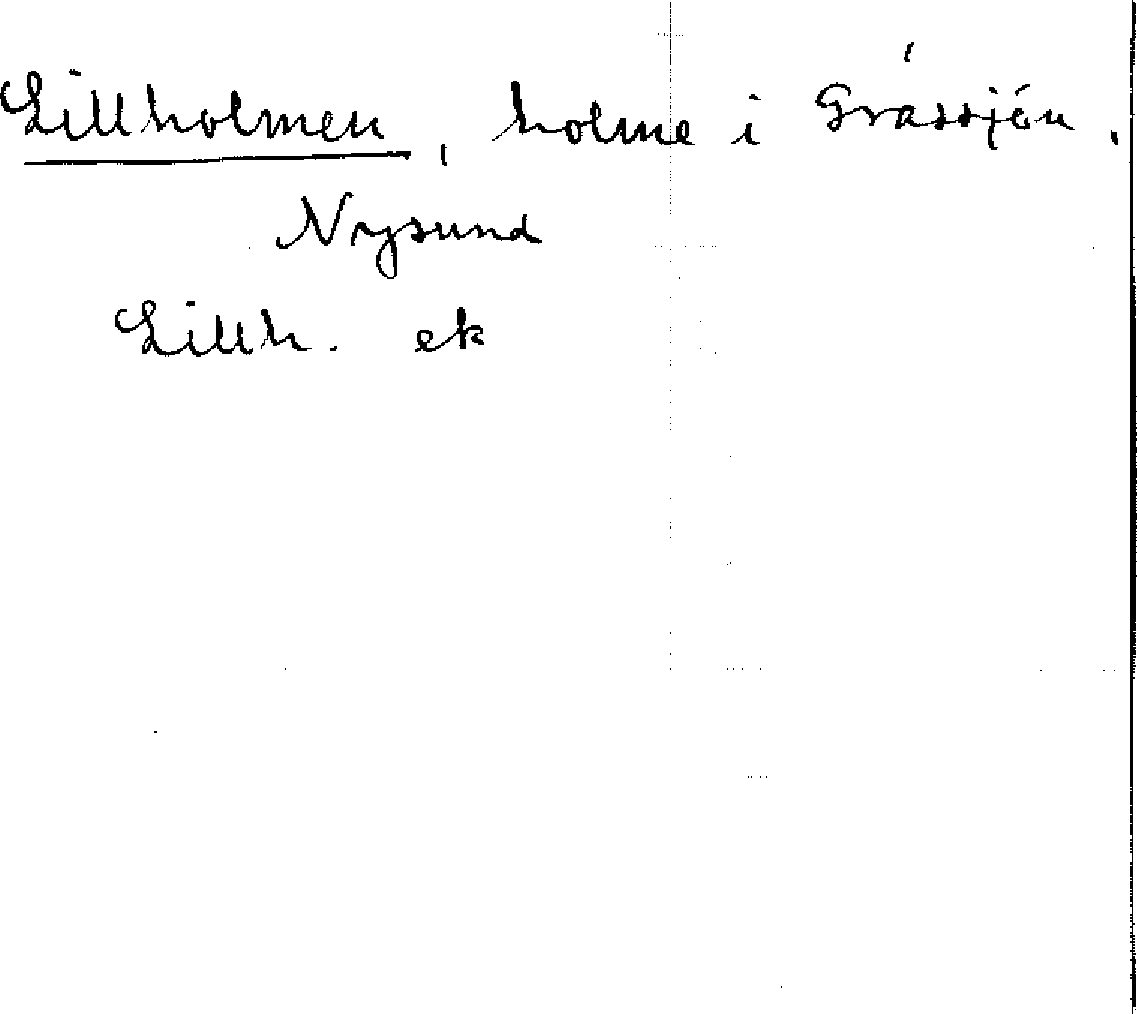 Lillholmen, holme i Gråssjön,
Nysund
Lillh. ek